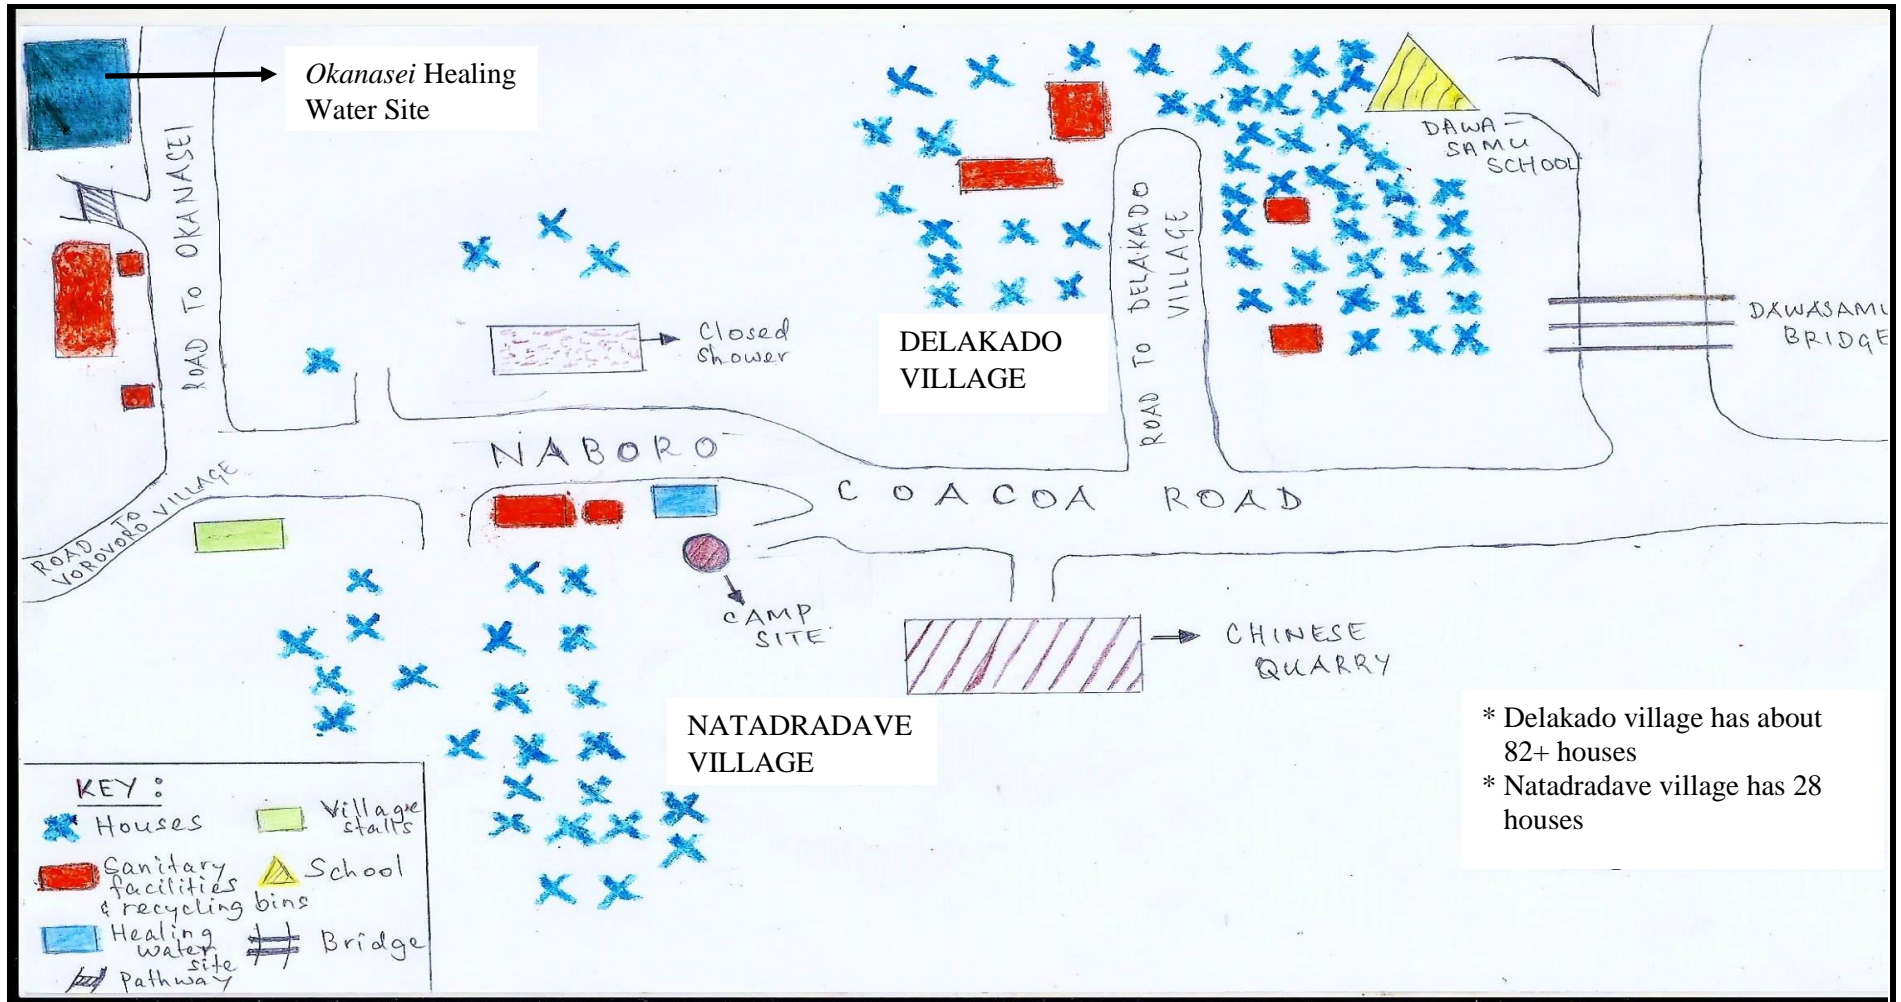 Okanasei Healing
Water Site
ROAD TO OKANASEI
DAWA-
SAMU
SCHOOL
ROAD TO DELAKADO
VILLAGE
DAWASAMU
BRIDGE
Closed
Shower
DELAKADO
VILLAGE
NABORO
COACOA ROAD
ROAD TO
VOROVORO VILLAGE
CAMP
SITE
CHINESE
QUARRY
NATADRADAVE
VILLAGE
* Delakado village has about
82+ houses
* Natadradave village has 28
houses
KEY :
Houses
Village
stalls
Sanitary
facilities
& recycling bins
School
Healing
water
site
Bridge
Pathway